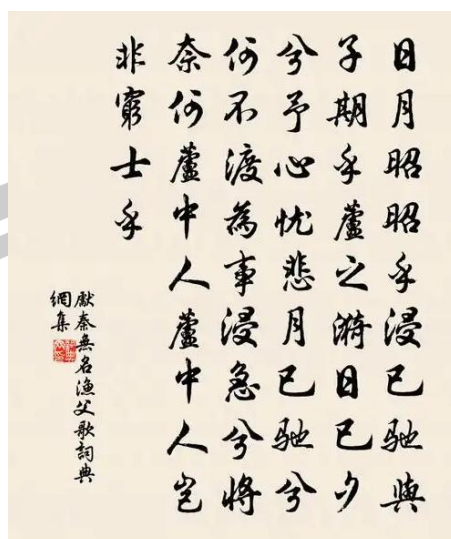 日月昭昭乎浸已驰與
子期乎蘆之漪日已夕
兮予心忧悲月已驰兮
何不渡為事浸急兮将
奈何蘆中人蘆中人岂
非窮士乎
獻秦無名漁父歌詞典
網集